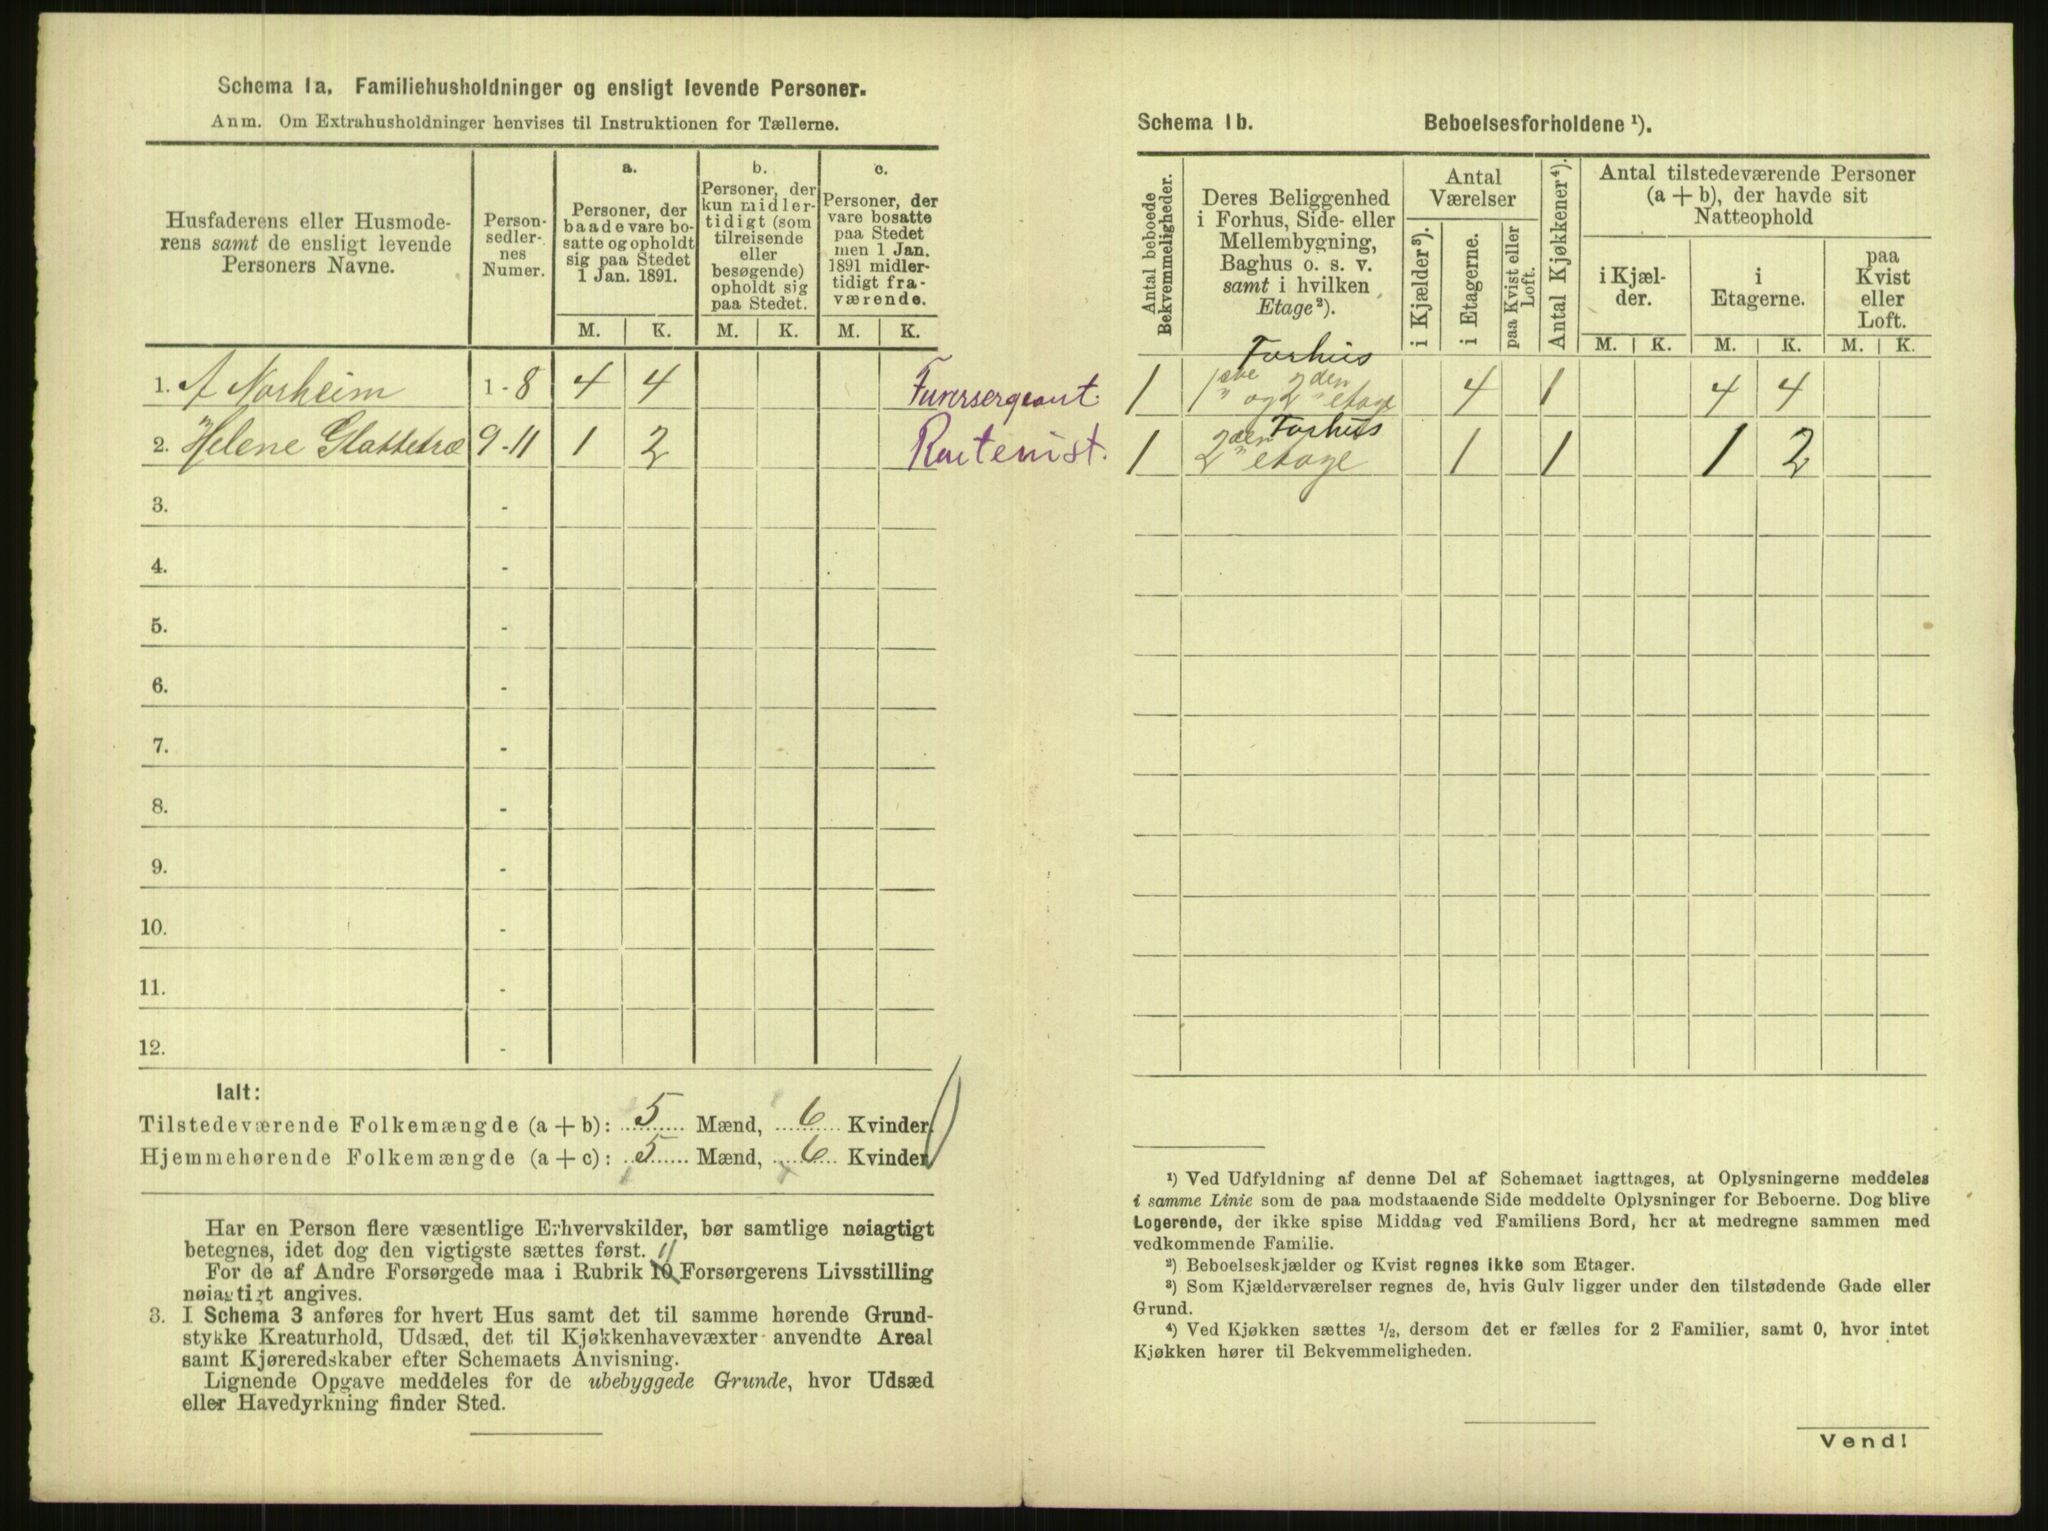 Schema 1a. Familiehusholdninger og ensligt levende Personer.
Anm. Om Extrahusholdninger henvises til Instruktionen for Tællerne.
Husfaderens eller Husmode-
rens samt de ensligt levende
Personers Navne.
Person-
sedler-
nes
Numer.
a.
Personer, der
baade vare bo-
satte og opholdt
sig paa Stedet
1 Jan. 1891.
b.
Personer, der
kun midler-
tidigt (som
tilreisende
eller
besøgende)
opholdt sig
paa Stedet.
c.
Personer, der
vare bosatte
paa Stedet
men 1 Jan.
1891 midler-
tidigt fra-
værende.
M. K. M. K. M. K.
1. A Norheim 1-8 4 4 Furersergeant.
2. Helene Glattetræ 9-11 1 2 Rentenist.
3. -
4. -
5. -
6. -
7. -
8. -
9. -
10. -
11. -
12. -
Ialt:
Tilstedeværende Folkemængde (a + b): 5 Mænd, 6 Kvinder.
Hjemmehørende Folkemængde (a + c): 5 Mænd, 6 Kvinder
Har en Person flere væsentlige Erhvervskilder, bør samtlige nøiagtigt
betegnes, idet dog den vigtigste sættes først.
11
For de af Andre Forsørgede maa i Rubrik 10 Forsørgerens Livsstilling
nøiagtigt angives.
3. I Schema 3 anføres for hvert Hus samt det til samme hørende Grund-
stykke Kreaturhold, Udsæd, det til Kjøkkenhavevæxter anvendte Areal
samt Kjøreredskaber efter Schemaets Anvisning.
Lignende Opgave meddeles for de ubebyggede Grunde, hvor Udsæd
eller Havedyrkning finder Sted.
Schema 1b. Beboelsesforholdene ¹).
Antal beboede
Bekvemmeligheder.
Deres Beliggenhed
i Forhus, Side- eller
Mellembygning,
Baghus o. s. v.
samt i hvilken
Etage²).
Antal
Værelser
i Kjælder³).
i Etagerne.
paa Kvist eller
Loft.
Antal Kjøkkener⁴).
Antal tilstedeværende Personer
(a + b), der havde sit
Natteophold
i Kjæl-
der.
i
Etagerne.
paa
Kvist
eller
Loft.
M. K. M. K. M. K.
Forhus
1 1ste og 2den etage 4 1 4 4
Forhus
1 2den etage 1 1 1 2
¹) Ved Udfyldning af denne Del af Schemaet iagttages, at Oplysningerne meddeles
i samme Linie som de paa modstaaende Side meddelte Oplysninger for Beboerne. Dog blive
Logerende, der ikke spise Middag ved Familiens Bord, her at medregne sammen med
vedkommende Familie.
²) Beboelseskjælder og Kvist regnes ikke som Etager.
³) Som Kjælderværelser regnes de, hvis Gulv ligger under den tilstødende Gade eller
Grund.
⁴) Ved Kjøkken sættes ½, dersom det er fælles for 2 Familier, samt 0, hvor intet
Kjøkken hører til Bekvemmeligheden.
Vend!